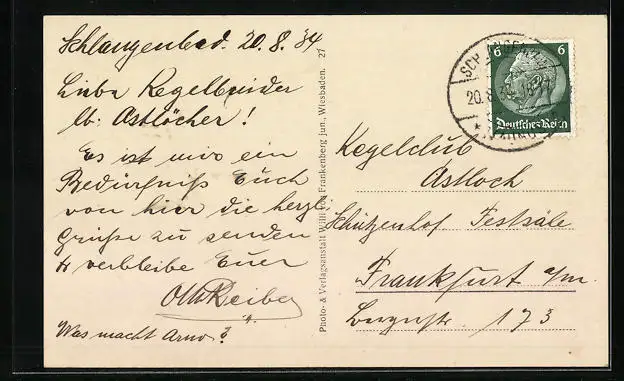 Schlangenbad. 20.8.34
Liebe Kegelbrüder
lb: Astlöcher!
Es ist mir ein
Bedürfniß Euch
von hier die herzl.
Grüße zu senden
& verbleibe Euer
Otto Reiber
Was macht Arno?
Photo- & Verlagsanstalt Willi von Frankenberg jun., Wiesbaden. 27
20.8.34
6 6
Deutsches Reich
Kegelclub
Astloch
Schützenhof Festsäle
Frankfurt a/m.
173